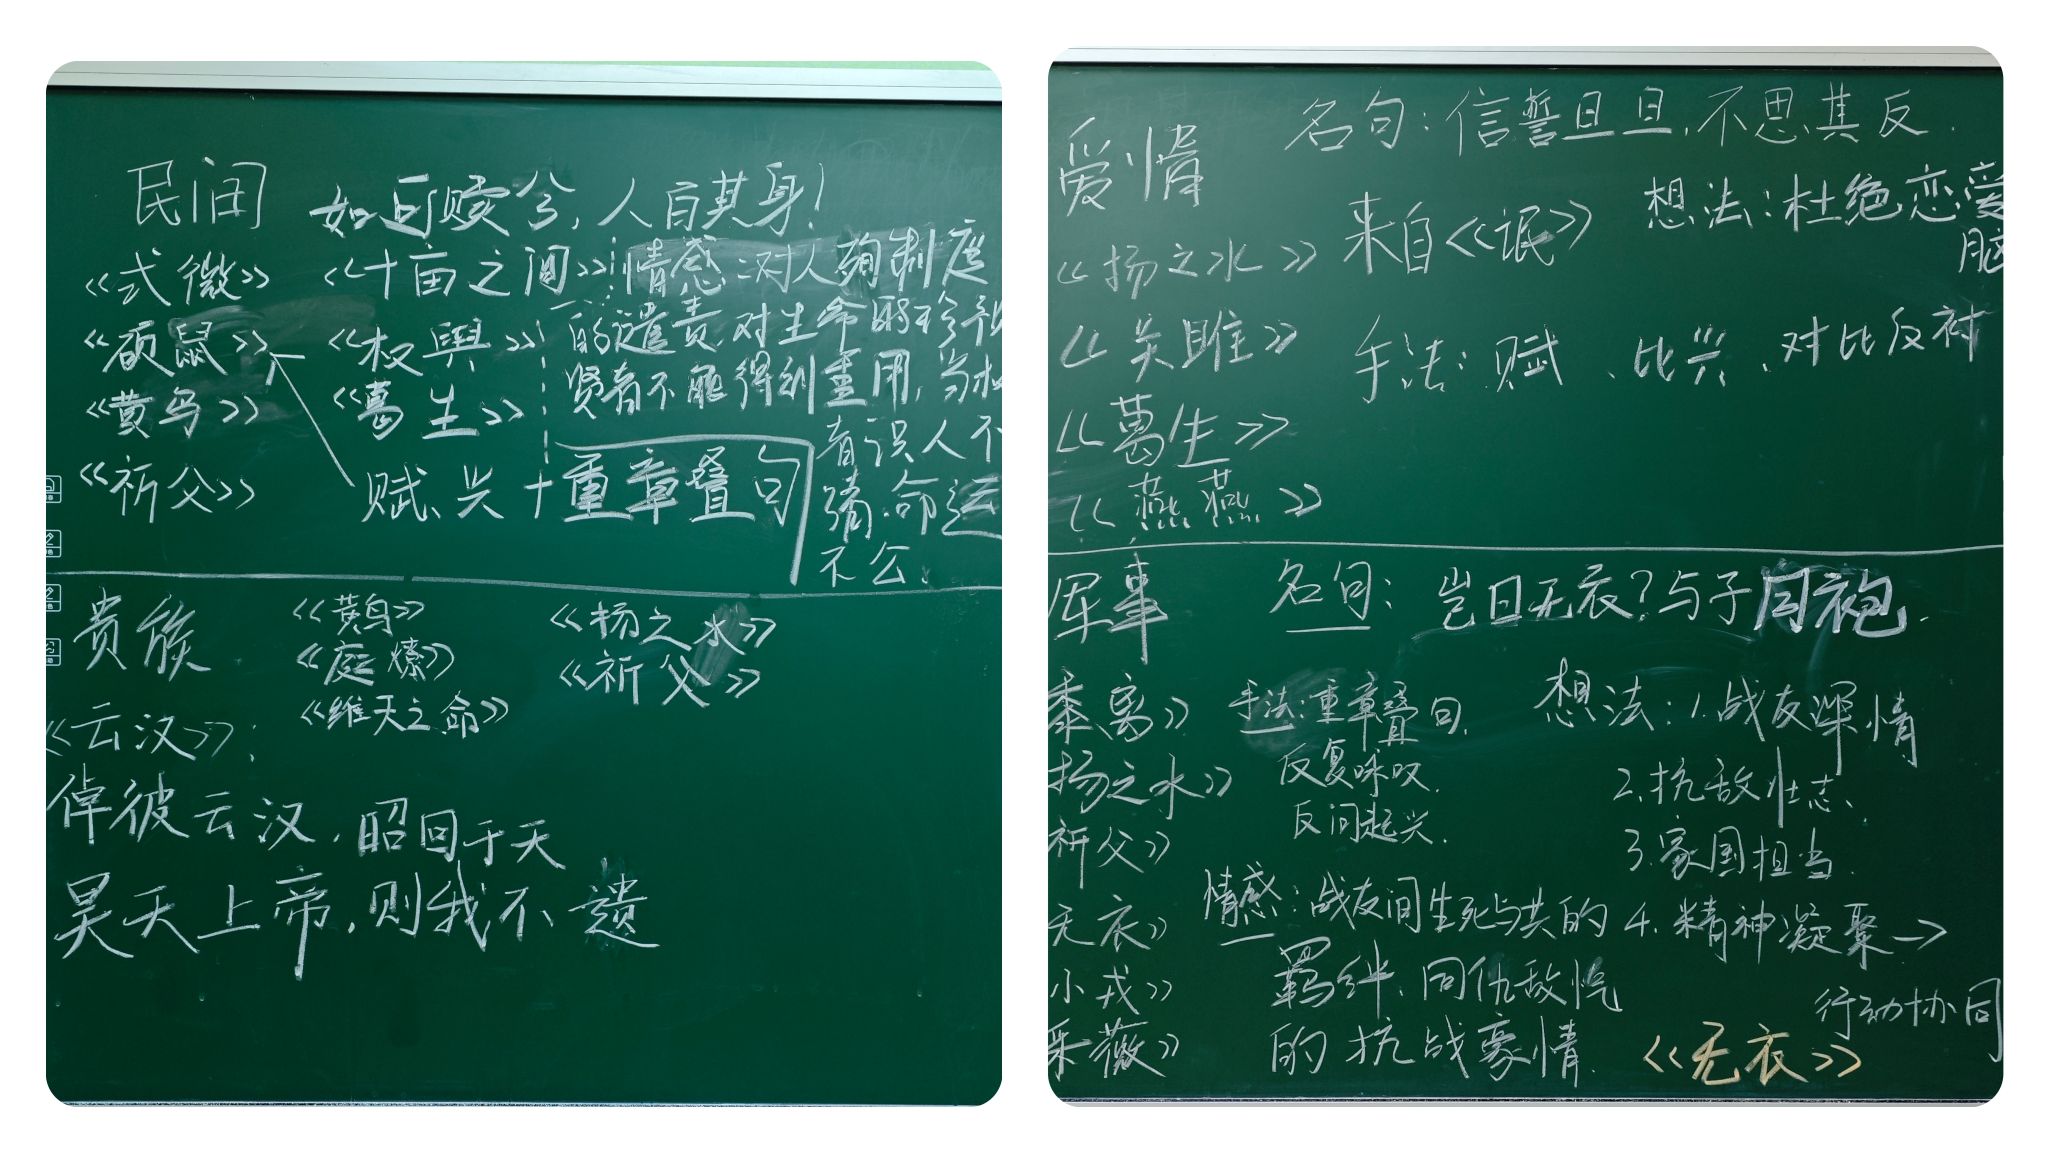 民间
如可赎兮，人百其身！
《式微》
《十亩之间》
情感：对人殉制度
的谴责，对生命的珍视
《硕鼠》
《权舆》
贤者不能得到重用，当权
《黄鸟》
《葛生》
者误人不
《祈父》
赋、兴+重章叠句
淆.命运
不公.
贵族
《黄鸟》
《扬之水》
《庭燎》
《祈父》
《维天之命》
《云汉》：
倬彼云汉，昭回于天
昊天上帝，则我不遗
爱情
名句：信誓旦旦，不思其反.
《扬之水》
来自《氓》
想法：杜绝恋爱
脑
《关雎》
手法：赋、比兴、对比反衬
《葛生》
《燕燕》
军事
名句：岂曰无衣？与子同袍.
黍离》
手法：重章叠句.
想法：1.战友深情
扬之水》
反复咏叹.
2.抗敌壮志.
祈父》
反问起兴.
3.家国担当.
无衣》
情感：战友间生死与共的
4.精神凝聚→
小戎》
羁绊、同仇敌忾
行动协同
采薇》
的抗战豪情.
《无衣》